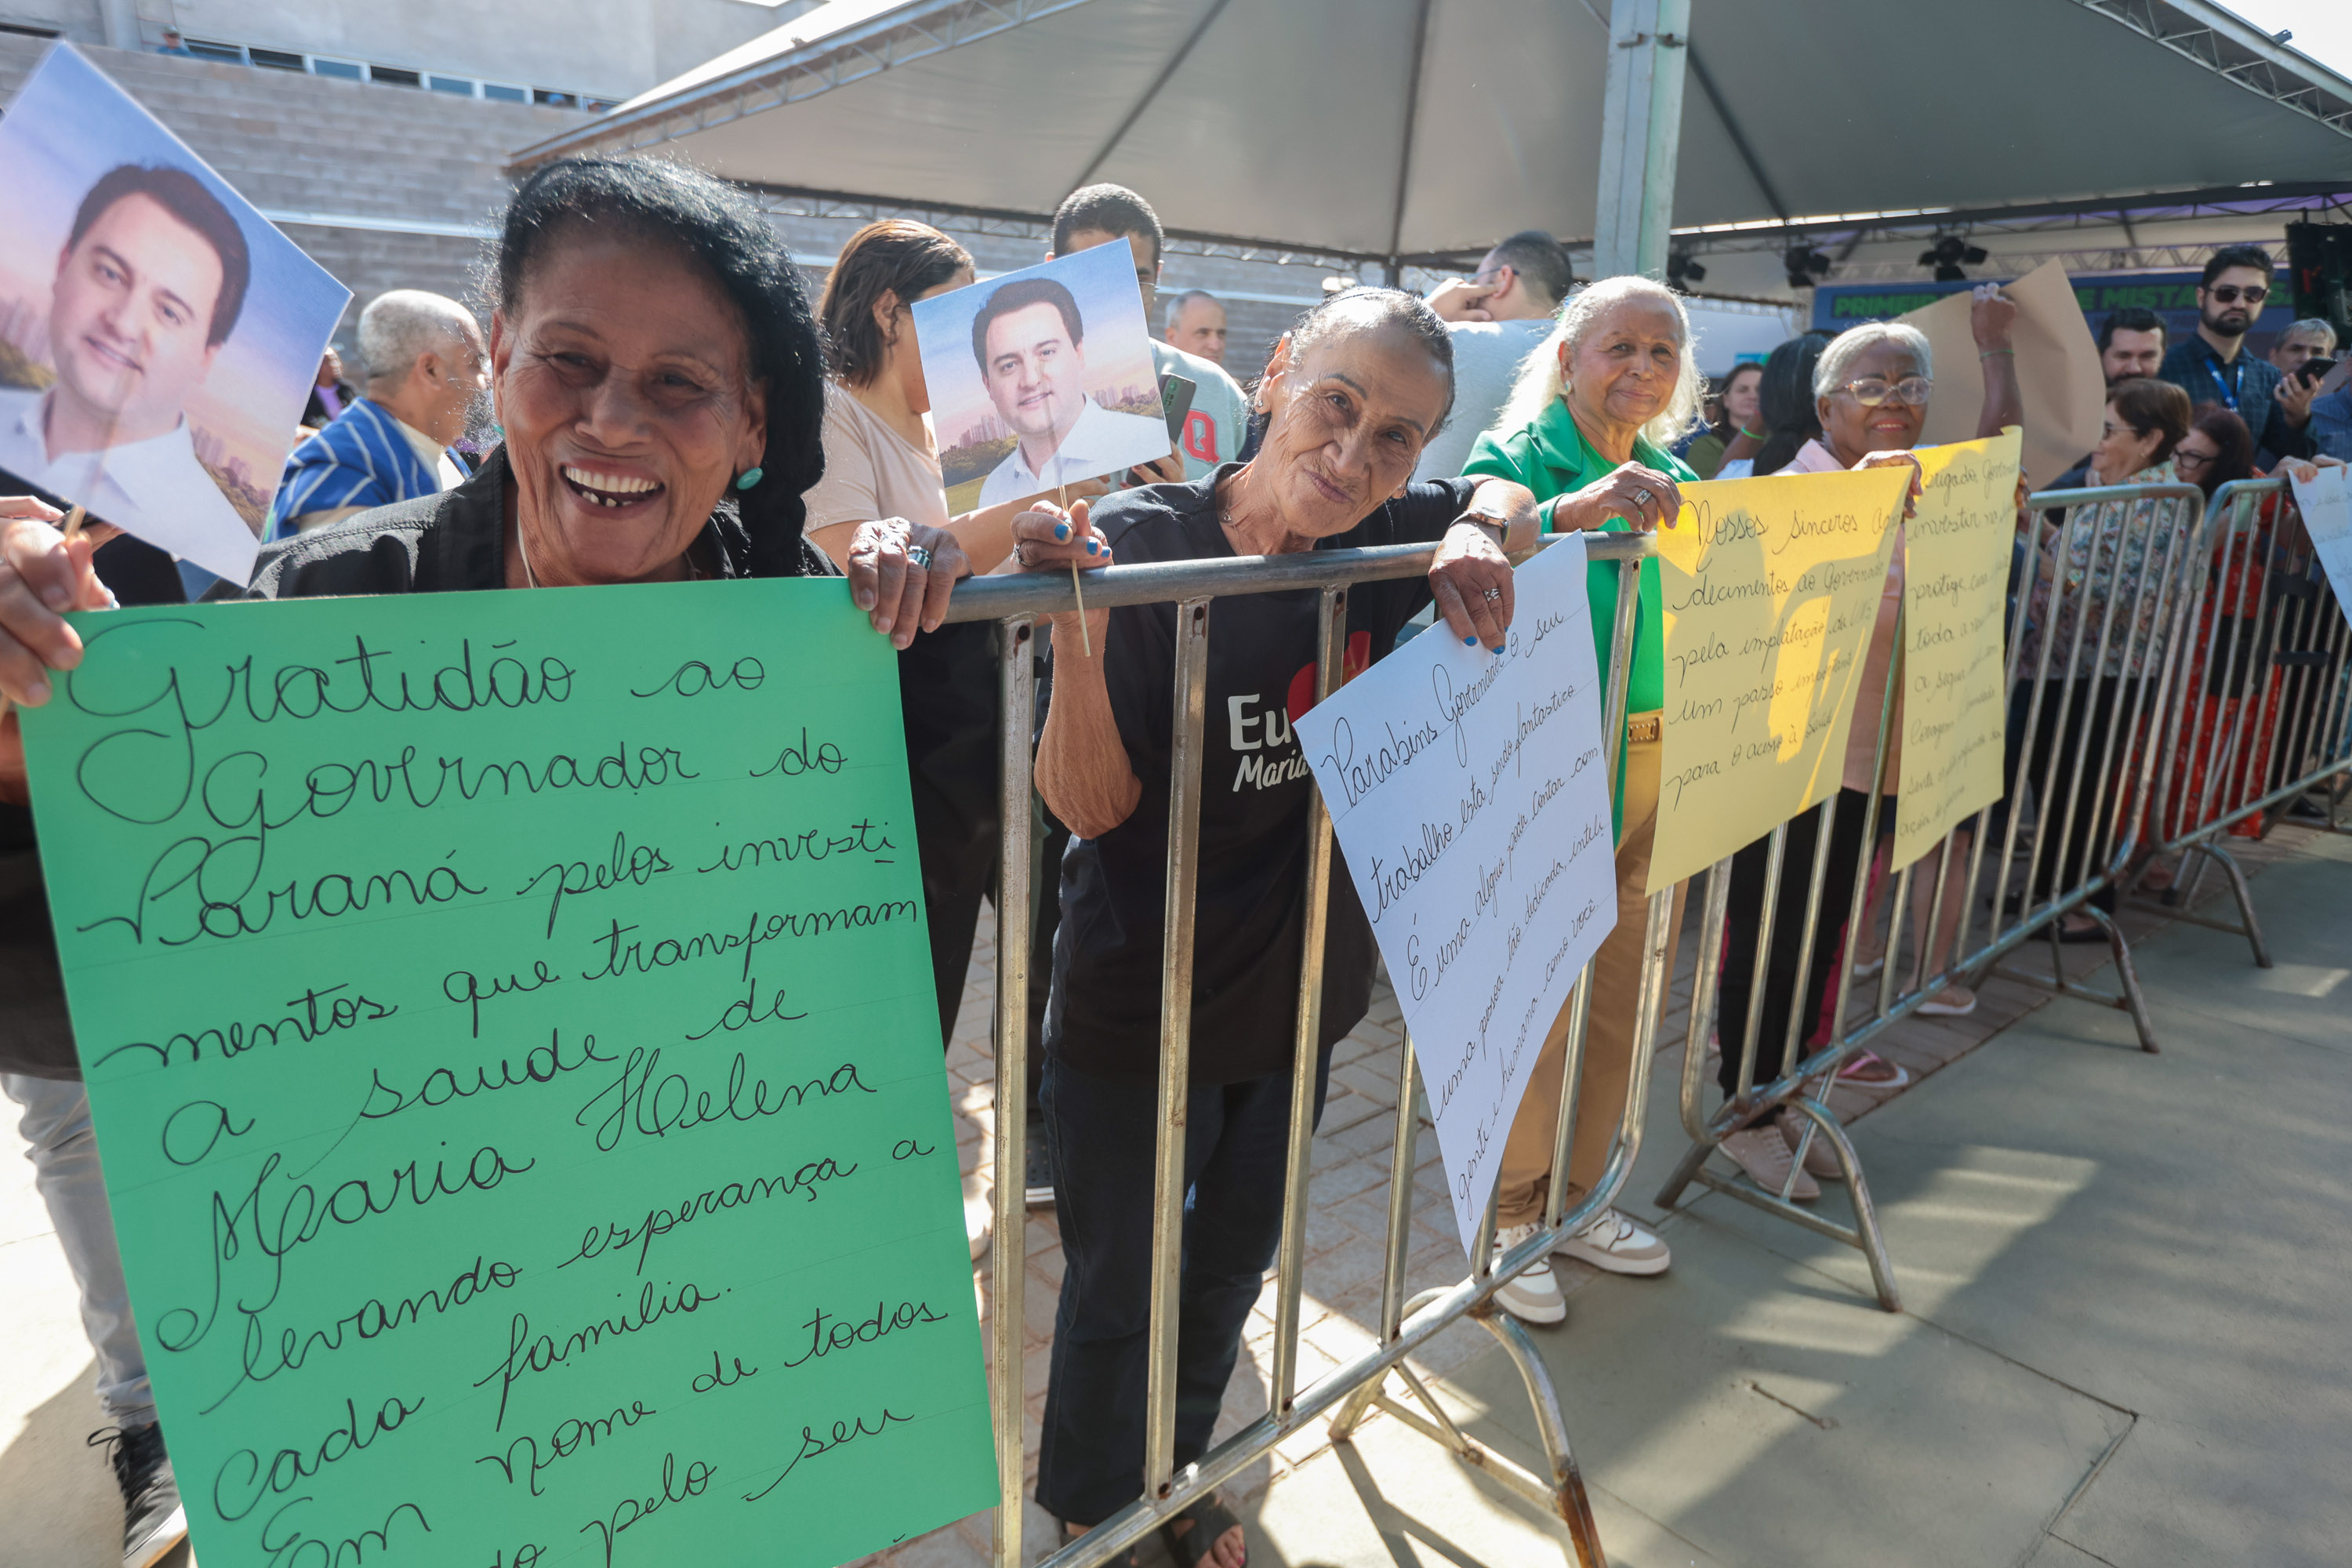 Gratidão ao
Governador do
Paraná pelos investi
mentos que transformam
a saude de
Maria Helena
levando esperança a
cada familia.
Em nome de todos
pelo seu
Eu
Maria
Parabins Governador o seu
trabalho esta sendo fantastico
É uma alegria poder contar com
uma pessoa tão dedicada, inteli
gente e humana como você
Nossos sinceros agra
decimentos ao Governador
pela implatação da
um passo importante
para o acesso à saúde
investir
protege
toda a
a segue
Coragem
PRIMEIR
E MISTA
Q